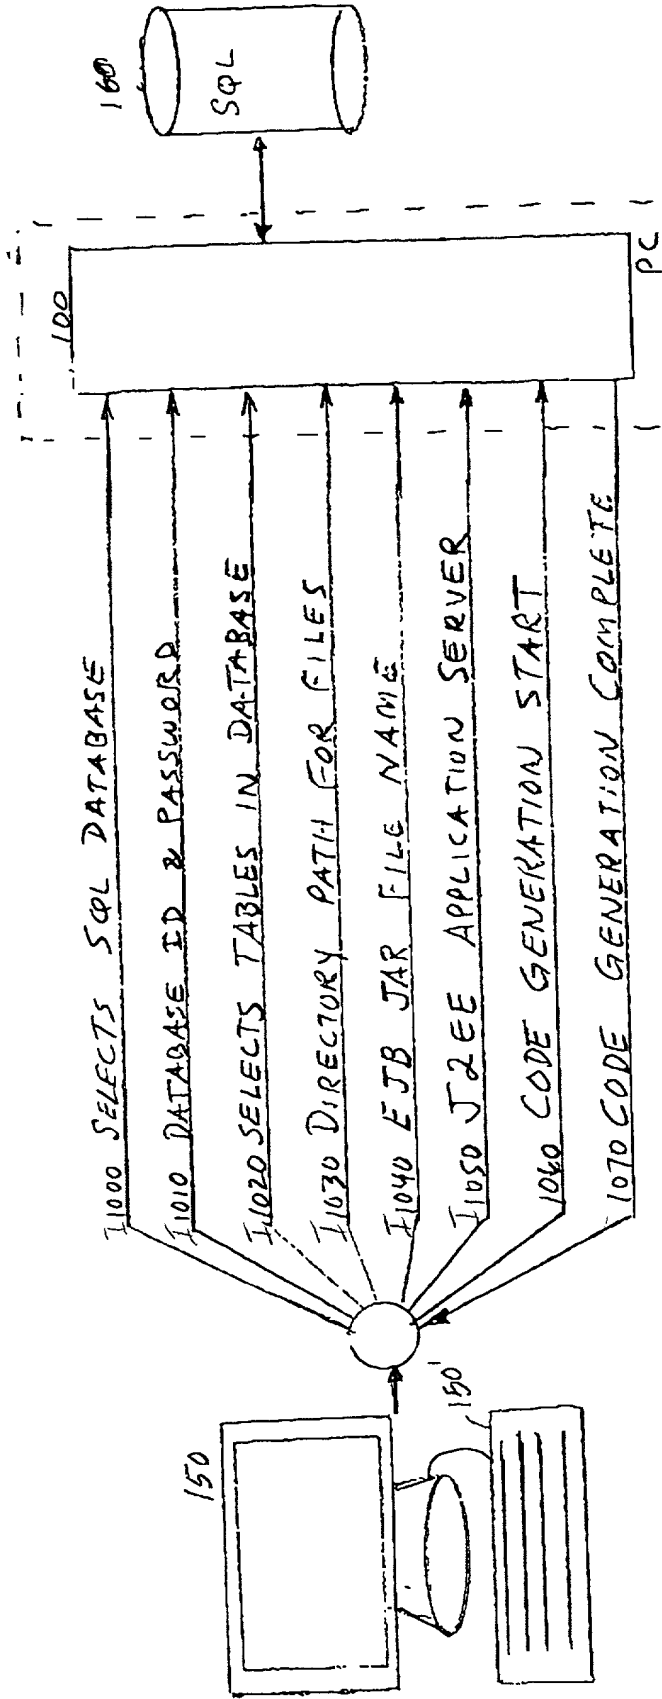 150
150'
I1000 SELECTS SQL DATABASE
I1010 DATABASE ID & PASSWORD
I1020 SELECTS TABLES IN DATABASE
I1030 DIRECTORY PATH FOR FILES
I1040 EJB JAR FILE NAME
I1050 J2EE APPLICATION SERVER
1060 CODE GENERATION START
1070 CODE GENERATION COMPLETE
100
PC
160
SQL